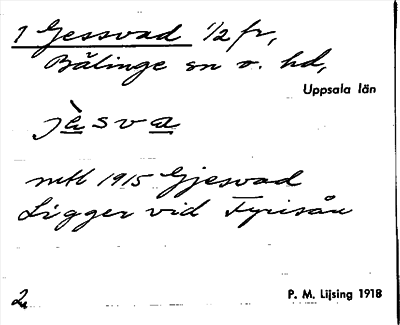 1 Gessvad 1/2 fr,
Bälinge sn o. hd,
Uppsala län
jèsva
mtl 1915 Gjesvad
Ligger vid Fyrisån
2.
P. M. Lijsing 1918